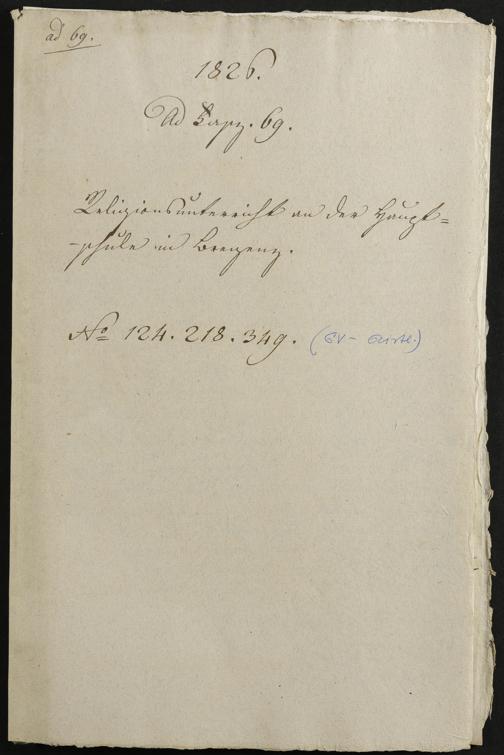 ad 69.
1826.
Ad Fasz. 69.
Religionsunterricht an der Haupt=
-schule in Bregenz.
No 124. 218. 349.